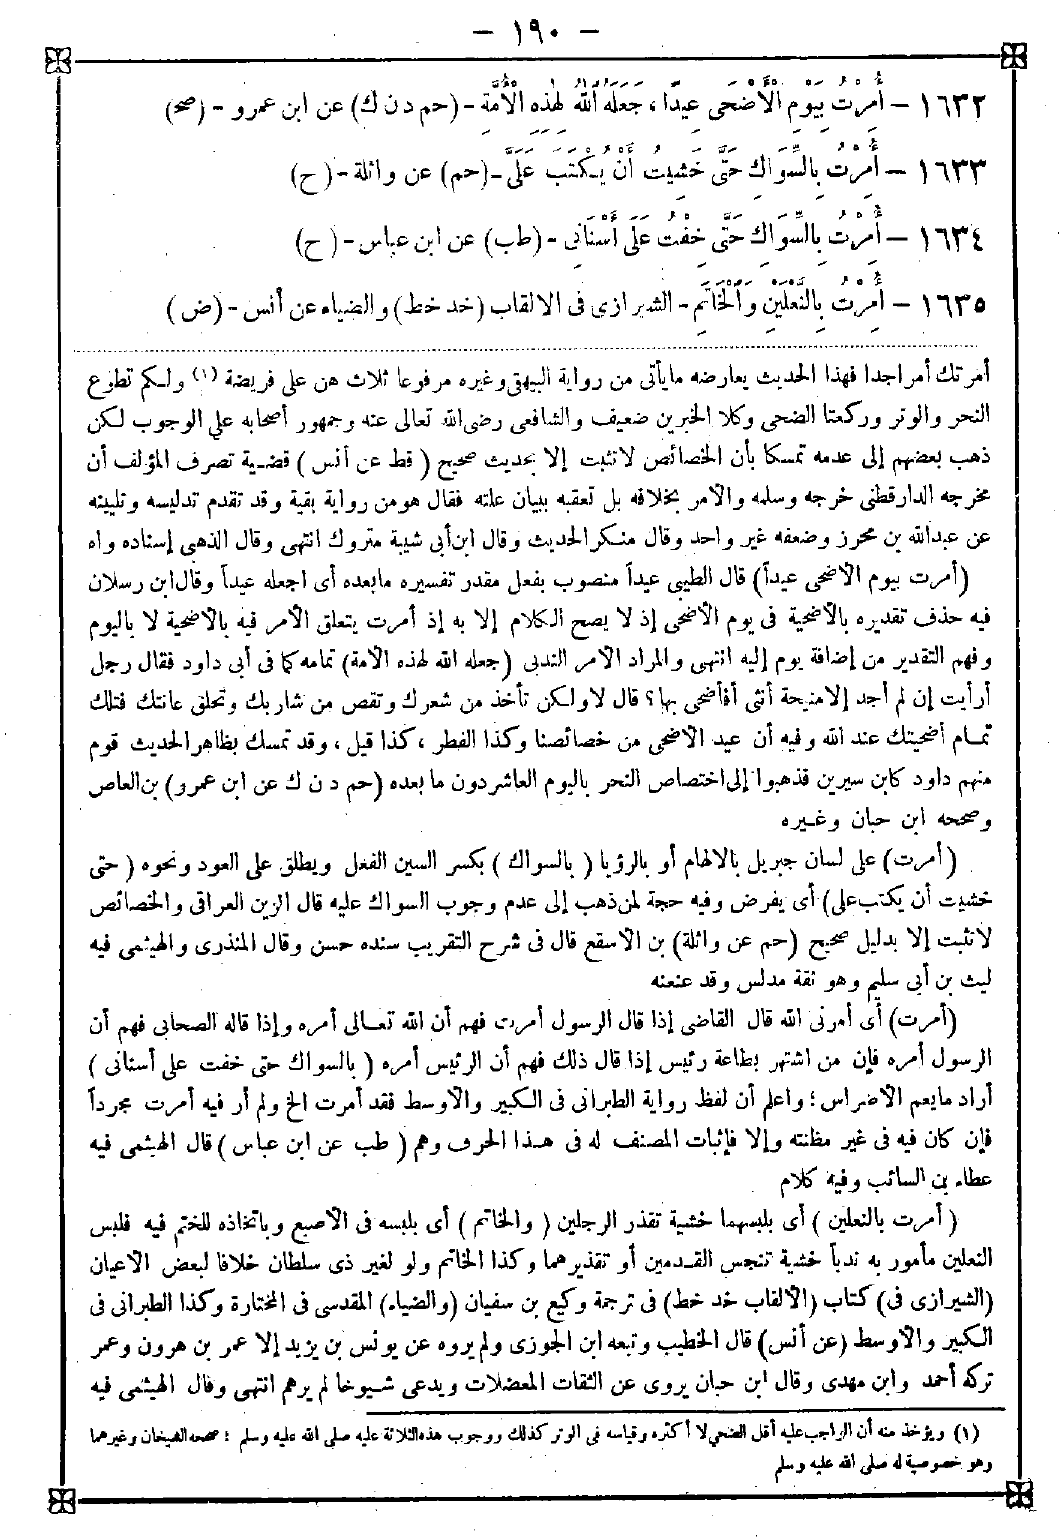 - ١٩٠ -
١٦٣٢ - أُمِرْتُ بِيَوْمِ الْأَضْحَى عِيدًا، جَعَلَهُ اللهُ لِهٰذِهِ الْأُمَّةِ - (حم د ن ك) عن ابن عمرو - (صح)
١٦٣٣ - أُمِرْتُ بِالسِّوَاكِ حَتَّى خَشِيتُ أَنْ يُكْتَبَ عَلَيَّ - (حم) عن واثلة - (ح)
١٦٣٤ - أُمِرْتُ بِالسِّوَاكِ حَتَّى خِفْتُ عَلَى أَسْنَانِي - (طب) عن ابن عباس - (ح)
١٦٣٥ - أُمِرْتُ بِالنَّعْلَيْنِ وَالْخَاتَمِ - الشيرازى فى الالقاب (خد خط) والضياء عن أنس - (ض)
أمرتك أمرا جدا فهذا الحديث يعارضه مايأتى من رواية البيهقى وغيره مرفوعا ثلاث هن على فريضة (١) ولكم تطوع
النحر والوتر وركعتا الضحى وكلا الخبرين ضعيف والشافعى رضى الله تعالى عنه وجمهور أصحابه على الوجوب لكن
ذهب بعضهم إلى عدمه تمسكا بأن الخصائص لاتثبت إلا بحديث صحيح (قط عن أنس) قضية تصرف المؤلف أن
مخرجه الدارقطنى خرجه وسلمه والأمر بخلافه بل تعقبه ببيان علته فقال هو من رواية بقية وقد تقدم تدليسه وتليينه
عن عبدالله بن محرز وضعفه غير واحد وقال منكر الحديث وقال ابن أبى شيبة متروك انتهى وقال الذهبى إسناده واه
(أمرت بيوم الأضحى عيداً) قال الطيبى عيداً منصوب بفعل مقدر تفسيره مابعده أى اجعله عيداً وقال ابن رسلان
فيه حذف تقديره بالأضحية فى يوم الأضحى إذ لا يصح الكلام إلا به إذ أمرت يتعلق الأمر فيه بالأضحية لا باليوم
وفهم التقدير من إضافة يوم إليه انتهى والمراد الأمر الندبى (جعله الله لهذه الأمة) تمامه كما فى أبى داود فقال رجل
أرأيت إن لم أجد إلا منيحة أنثى أفأضحى بها؟ قال لا ولكن تأخذ من شعرك وتقص من شاربك وتحلق عانتك فتلك
تمام أضحيتك عند الله وفيه أن عيد الأضحى من خصائصنا وكذا الفطر، كذا قيل، وقد تمسك بظاهر الحديث قوم
منهم داود كابن سيرين فذهبوا إلى اختصاص النحر باليوم العاشر دون ما بعده (حم د ن ك عن ابن عمرو) بن العاص
وصححه ابن حبان وغيره
(أمرت) على لسان جبريل بالالهام أو بالرؤيا (بالسواك) بكسر السين الفعل ويطلق على العود ونحوه (حتى
خشيت أن يكتب على) أى يفرض وفيه حجة لمن ذهب إلى عدم وجوب السواك عليه قال الزين العراقى والخصائص
لاتثبت إلا بدليل صحيح (حم عن واثلة) بن الاسقع قال فى شرح التقريب سنده حسن وقال المنذرى والهيثمى فيه
ليث بن أبى سليم وهو ثقة مدلس وقد عنعنه
(أمرت) أى أمرنى الله قال القاضى إذا قال الرسول أمرت فهم أن الله تعالى أمره وإذا قاله الصحابى فهم أن
الرسول أمره فإن من اشتهر بطاعة رئيس إذا قال ذلك فهم أن الرئيس أمره (بالسواك حتى خفت على أسنانى)
أراد مايعم الأضراس؛ واعلم أن لفظ رواية الطبرانى فى الكبير والأوسط فقد أمرت الخ ولم أر فيه أمرت مجرداً
فإن كان فيه فى غير مظنته وإلا فإثبات المصنف له فى هذا الحرف وهم (طب عن ابن عباس) قال الهيثمى فيه
عطاء بن السائب وفيه كلام
(أمرت بالنعلين) أى بلبسهما خشية تقذر الرجلين (والخاتم) أى بلبسه فى الأصبع وباتخاذه للختم فيه فلبس
النعلين مأمور به ندباً خشية تنجس القدمين أو تقذيرهما وكذا الخاتم ولو لغير ذى سلطان خلافا لبعض الأعيان
(الشيرازى فى) كتاب (الألقاب خد خط) فى ترجمة وكيع بن سفيان (والضياء) المقدسى فى المختارة وكذا الطبرانى فى
الكبير والأوسط (عن أنس) قال الخطيب وتبعه ابن الجوزى ولم يروه عن يونس بن يزيد إلا عمر بن هرون وعمر
تركه أحمد وابن مهدى وقال ابن حبان يروى عن الثقات المعضلات ويدعى شيوخا لم يرهم انتهى وقال الهيثمى فيه
(١) ويؤخذ منه أن الواجب عليه أقل الضحى لا أكثره وقياسه فى الوتر كذلك ووجوب هذه الثلاثة عليه صلى الله عليه وسلم : صححه الشيخان وغيرهما
وهو خصوصية له صلى الله عليه وسلم